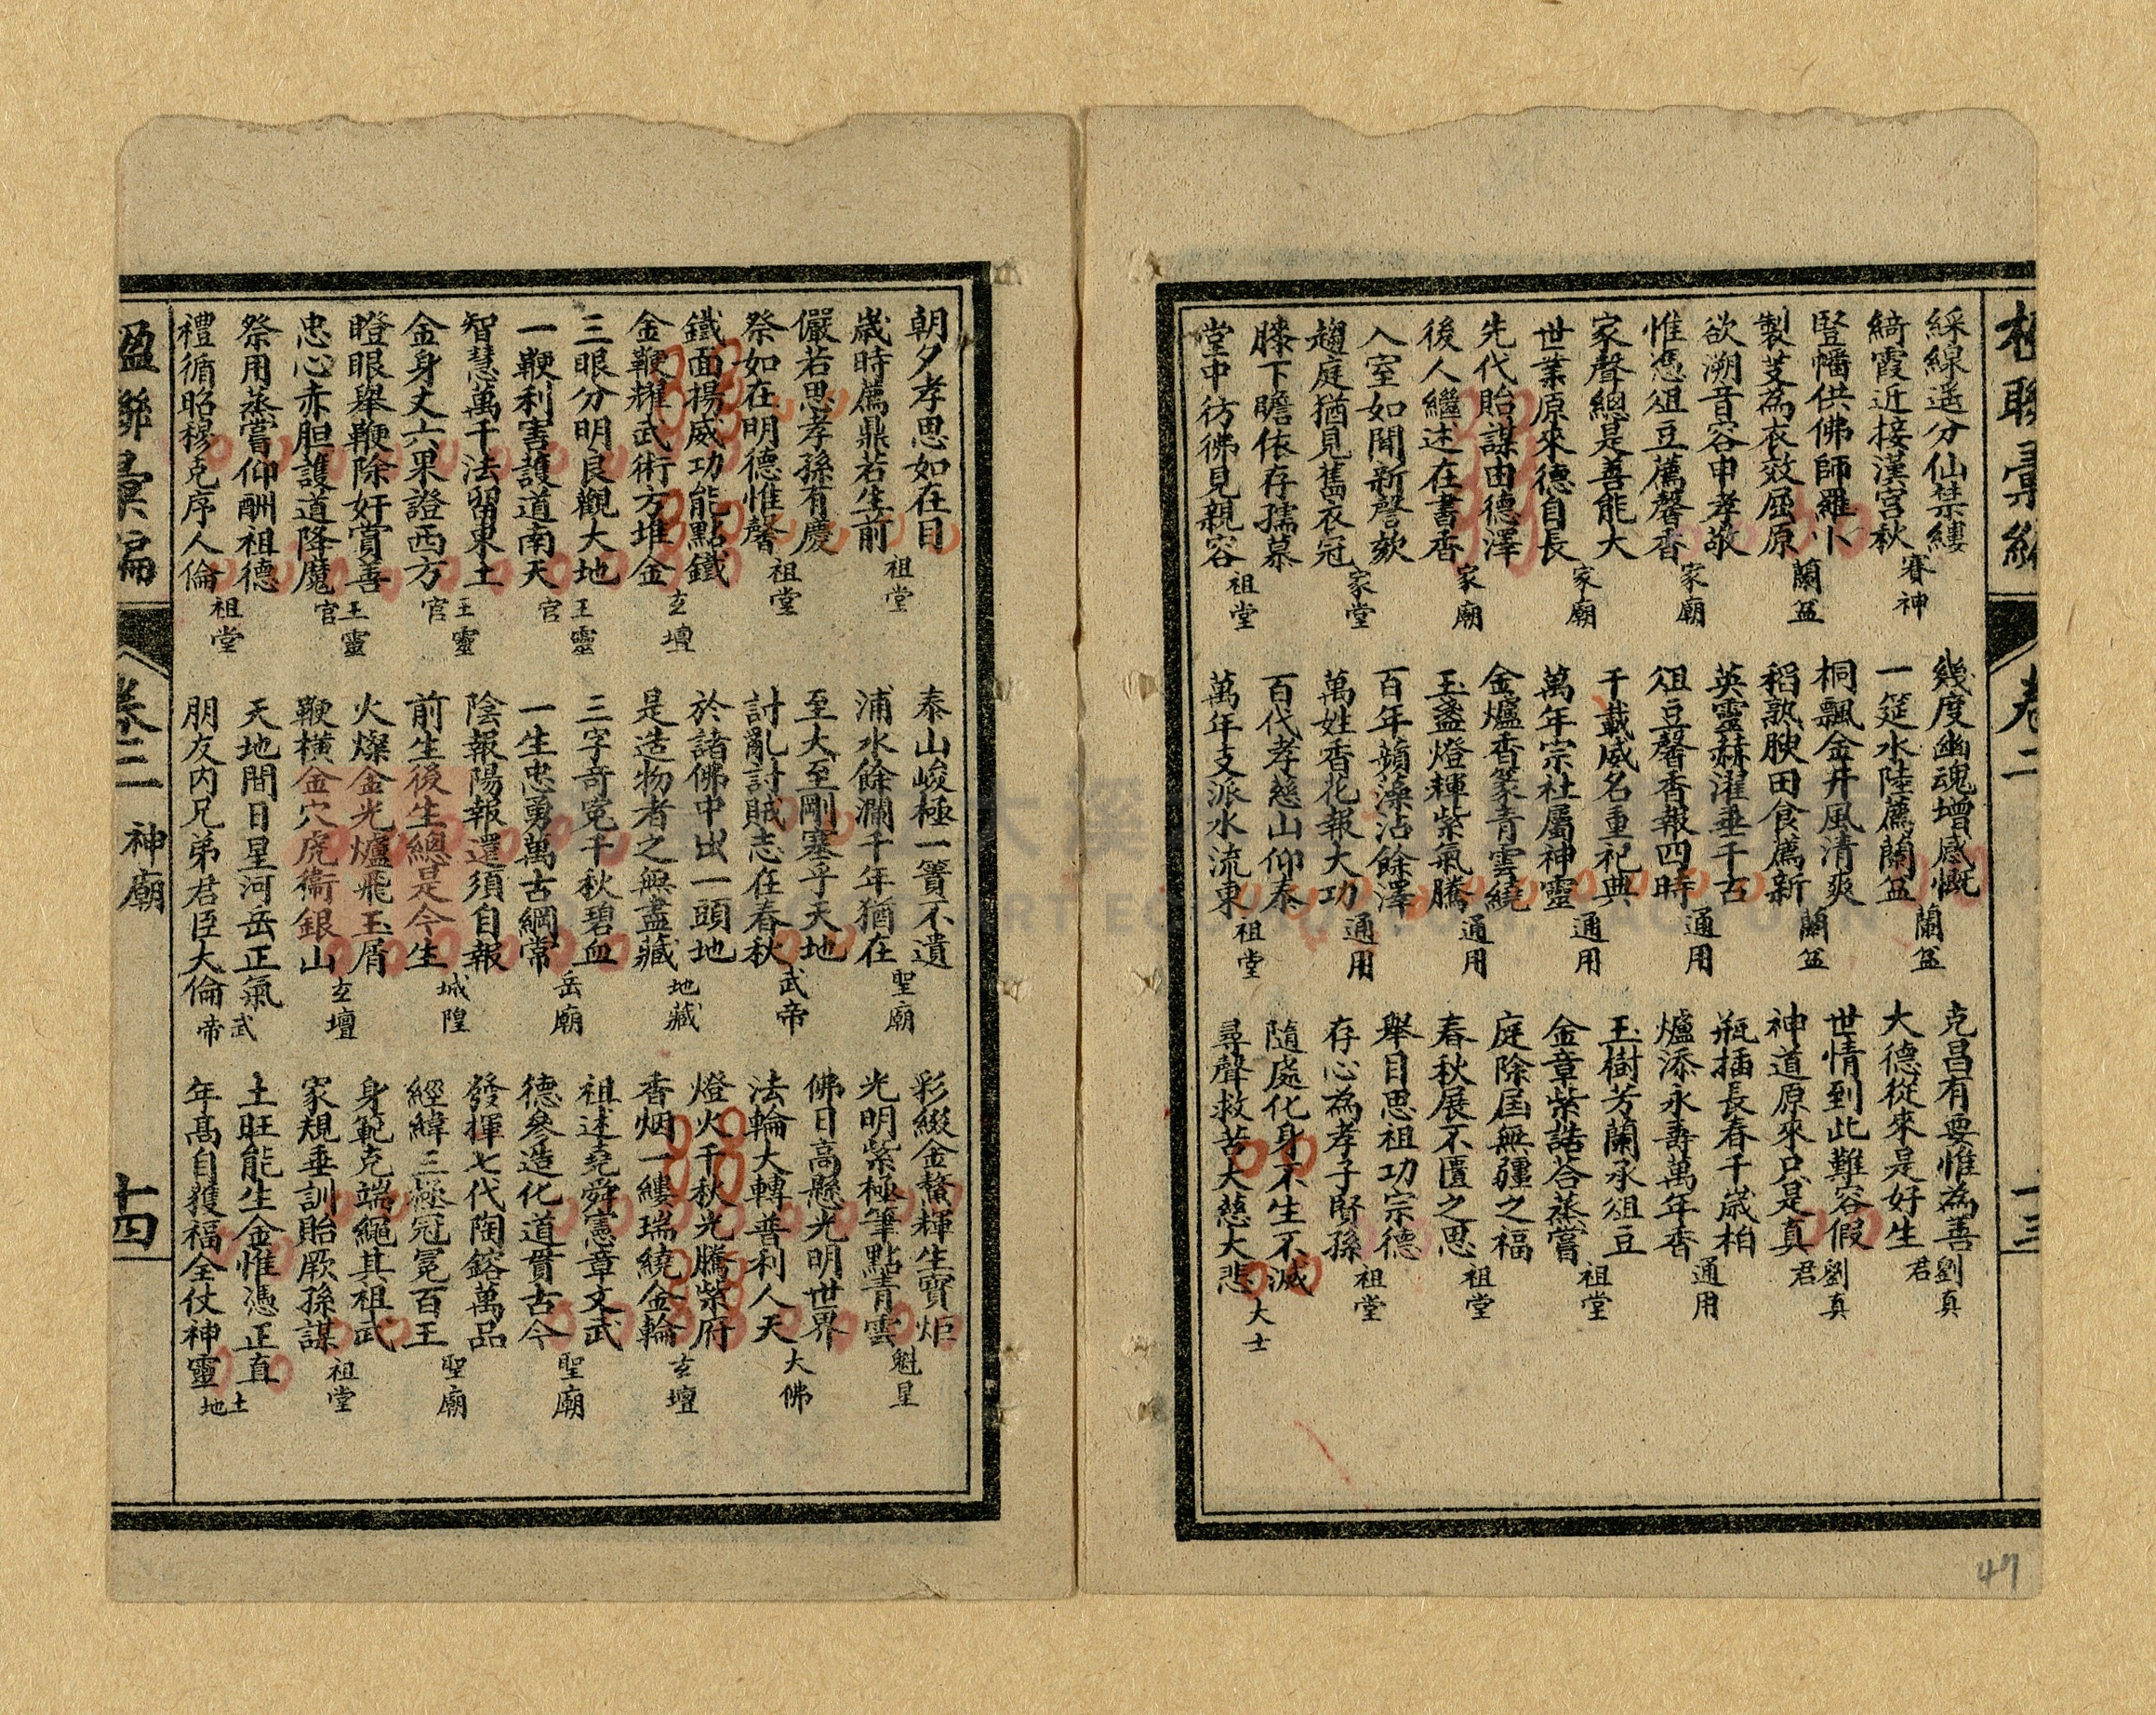 楹聯彙編
卷二
十三
綵線遥分仙禁縷
綺霞近接漢宮秋 賽神
豎幡供佛師羅卜
製芰為衣效屈原 蘭盆
欲溯音容申孝敬
惟憑俎豆薦馨香 家廟
家聲總是善能大
世業原來德自長 家廟
先代貽謀由德澤
後人繼述在書香 家廟
入室如聞新謦欬
趨庭猶見舊衣冠 家堂
膝下瞻依存孺慕
堂中彷彿見親容 祖堂
幾度幽魂增感慨
一筵水陸薦蘭盆 蘭盆
桐飄金井風清爽
稻熟腴田食薦新 蘭盆
英靈赫濯垂千古
俎豆馨香報四時 通用
千載威名重祀典
萬年宗社屬神靈 通用
金爐香篆青雲繞
玉盞燈輝紫氣騰 通用
百年蘋藻沾餘澤
萬姓香花報大功 通用
百代孝慈山仰泰
萬年支派水流東 祖堂
克昌有要惟為善
大德從來是好生 劉真君
世情到此難容假
神道原來只是真 劉真君
瓶插長春千歲柏
爐添永壽萬年香 通用
玉樹芳蘭承俎豆
金章紫誥荅蒸嘗 祖堂
庭除屆無疆之福
春秋展不匱之思 祖堂
舉目思祖功宗德
存心為孝子賢孫 祖堂
隨處化身不生不滅
尋聲救苦大慈大悲 大士
47
朝夕孝思如在目
歲時薦鼎若生前 祖堂
儼若思孝孫有慶
祭如在明德惟馨 祖堂
鐵面揚威功能點鐵
金鞭耀武術方堆金 玄壇
三眼分明良觀大地
一鞭利害護道南天 王靈官
智慧萬千法留東土
金身丈六果證西方 王靈官
瞪眼舉鞭除奸賞善
忠心赤胆護道降魔 王靈官
祭用蒸嘗仰酬祖德
禮循昭穆克序人倫 祖堂
泰山峻極一簣不遺
浦水餘瀾千年猶在 聖廟
至大至剛塞乎天地
討亂討賊志在春秋 武帝
於諸佛中出一頭地
是造物者之無盡藏 地藏
三字奇冤千秋碧血
一生忠勇萬古綱常 岳廟
陰報陽報還須自報
前生後生總是今生 城隍
火燦金光爐飛玉屑
鞭橫金穴虎衛銀山 玄壇
天地間日星河岳正氣
朋友內兄弟君臣大倫 武帝
彩綴金鰲輝生寶炬
光明紫極筆點青雲 魁星
佛日高懸光明世界
法輪大轉普利人天 大佛
燈火千秋光騰紫府
香烟一縷瑞繞金輪 玄壇
祖述堯舜憲章文武
德參造化道貫古今 聖廟
發揮七代陶鎔萬品
經緯三極冠冕百王 聖廟
身範克端繩其祖武
家規垂訓貽厥孫謀 祖堂
土旺能生金惟憑正直
年高自獲福全仗神靈 土地
楹聯彙編
卷二 神廟
十四